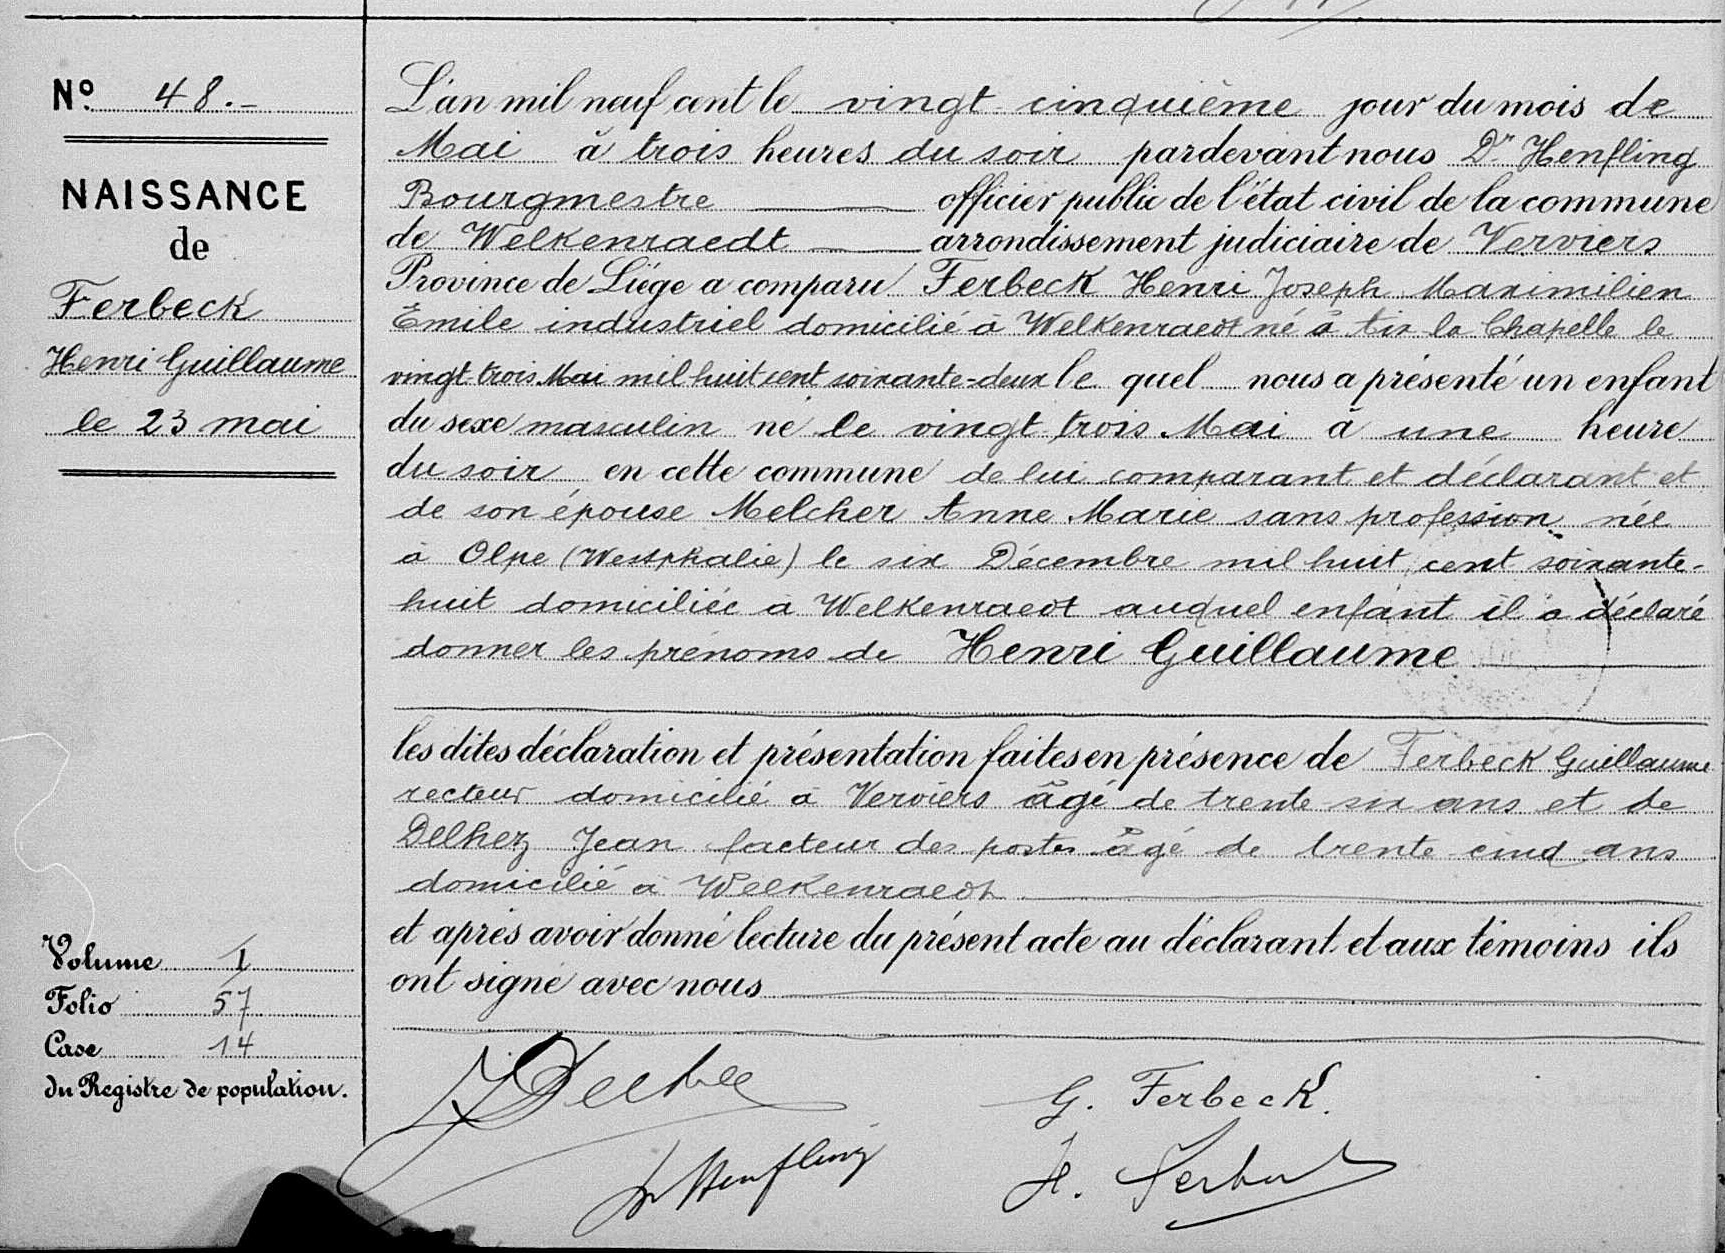 Nº 48.-
NAISSANCE
de
Ferbeck
Henri Guillaume
le 23 mai
Volume 1
Folio 57
Case 14
du Registre de population.
L'an mil neuf cent le vingt cinquième jour du mois de
Mai à trois heures du soir pardevant nous Dr Henfling
Bourgmestre officier public de l'état civil de la commune
de Welkenraedt arrondissement judiciaire de Verviers
Province de Liége a comparu Ferbeck Henri Joseph Maximilien
Emile industriel domicilié à Welkenraedt né à Aix la Chapelle le
vingt trois Mai mil huit cent soixante-deux le quel nous a présenté un enfant
du sexe masculin né le vingt trois Mai à une heure
du soir en cette commune de lui comparant et déclarant et
de son épouse Melcher Anne Marie sans profession née
à Olpe (Westphalie) le six Décembre mil huit cent soixante-
huit domiciliée à Welkenraedt auquel enfant il a déclaré
donner les prénoms de Henri Guillaume
les dites déclaration et présentation faites en présence de Ferbeck Guillaume
recteur domicilié à Verviers âgé de trente six ans et de
Delhez Jean facteur des postes âgé de trente cinq ans
domicilié à Welkenraedt
et après avoir donné lecture du présent acte au déclarant et aux témoins ils
ont signé avec nous
G. Ferbeck.
Dr Henfling